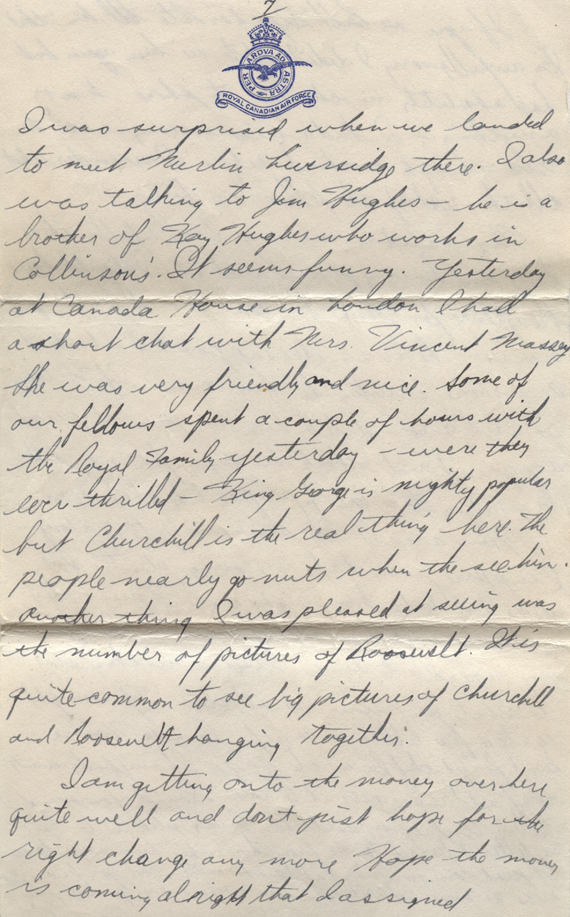 7
PER ARDVA AD ASTRA
ROYAL CANADIAN AIR FORCE
I was surprised when we landed
to meet Merlin Liversidge there. I also
was talking to Jim Hughes – he is a
brother of Kay Hughes who works in
Collinsons'. It seems funny. Yesterday
at Canada House in London I had
a short chat with Mrs. Vincent Massey
She was very friendly and nice. Some of
our fellows spent a couple of hours with
the Royal Family yesterday – were they
ever thrilled – King George is mighty popular
but Churchill is the real thing here. The
people nearly go nuts when the see him.
another thing I was pleased at seeing was
the number of pictures of Roosevelt. It is
quite common to see big pictures of Churchill
and Roosevelt hanging together.
I am getting onto the money over here
quite well and don't just hope for the
right change any more Hope the money
is coming alright that I assigned